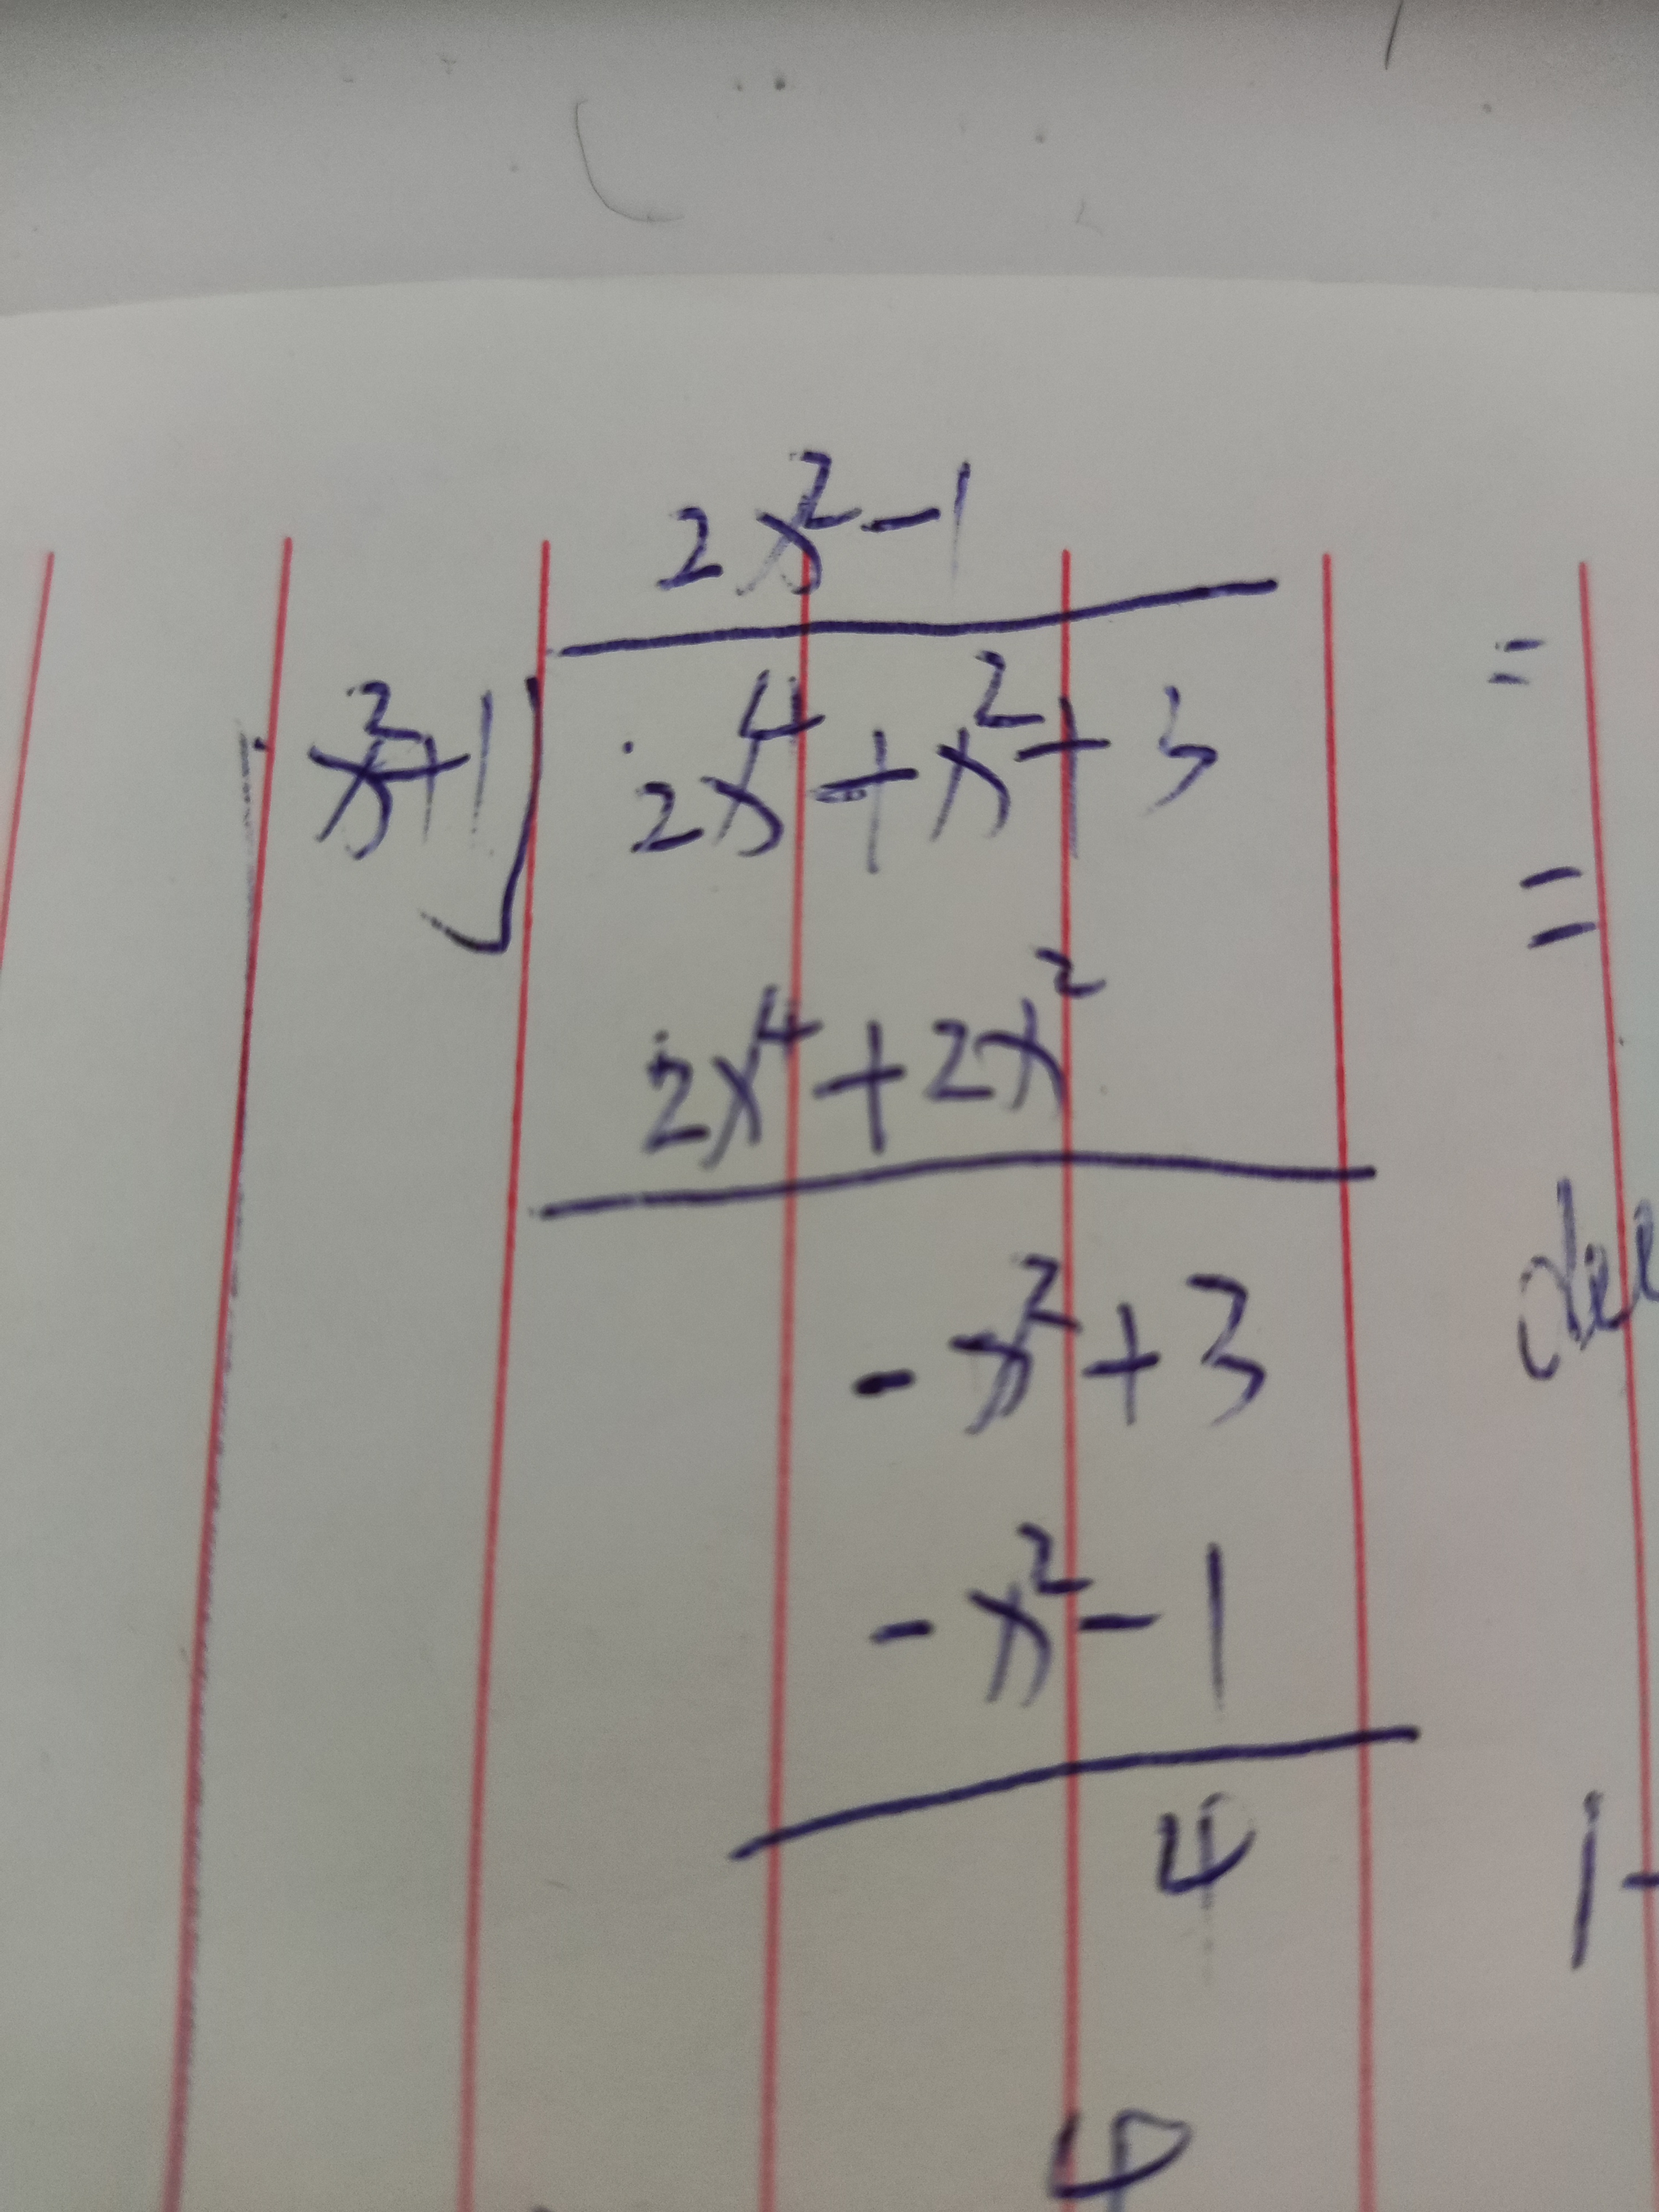 2x²-1
x²+1 2x⁴+x²+3
=
=
2x⁴+2x²
-x²+3
-x²-1
4
1-